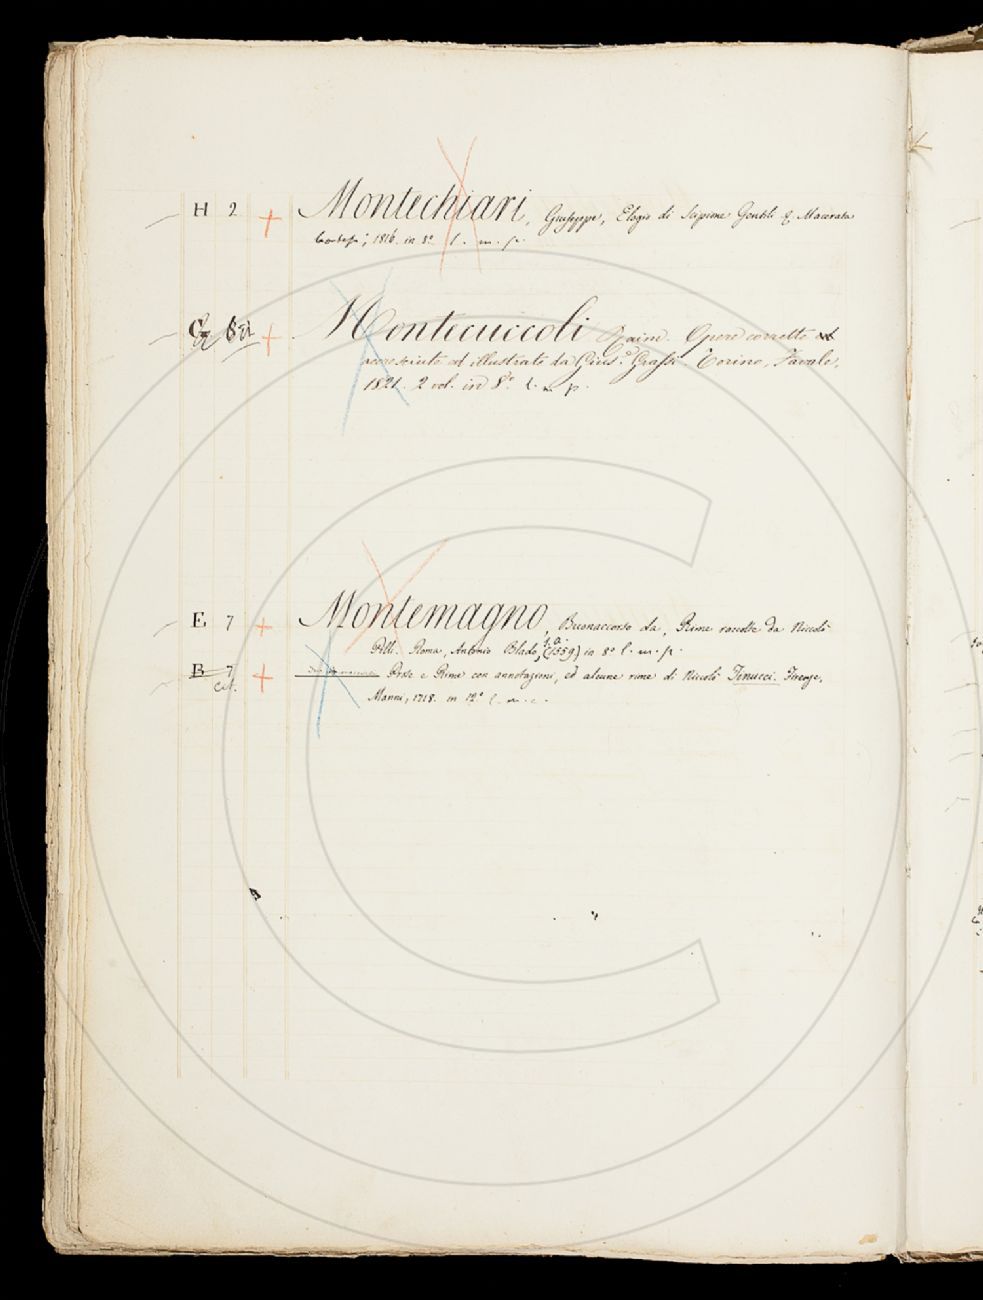 H 2 Montechiari, Giuseppe, Elogio di Scipione Gentili. Macerata
1816. in 8° l. m. p.
Montecuccoli Opere corrette
accresciute ed illustrate da Gius.e Grassi. Torino, Favale,
1821. 2 vol. in 8° l. m. p.
E 7 Montemagno, Buonaccorso da, Rime raccolte da Niccolò
Pilli. Roma, Antonio Blado, (1559) in 8° l. m. p.
B 7 Prose e Rime con annotazioni, ed alcune rime di Niccolò Tinucci. Firenze,
Cit.
Manni, 1718. in 12°